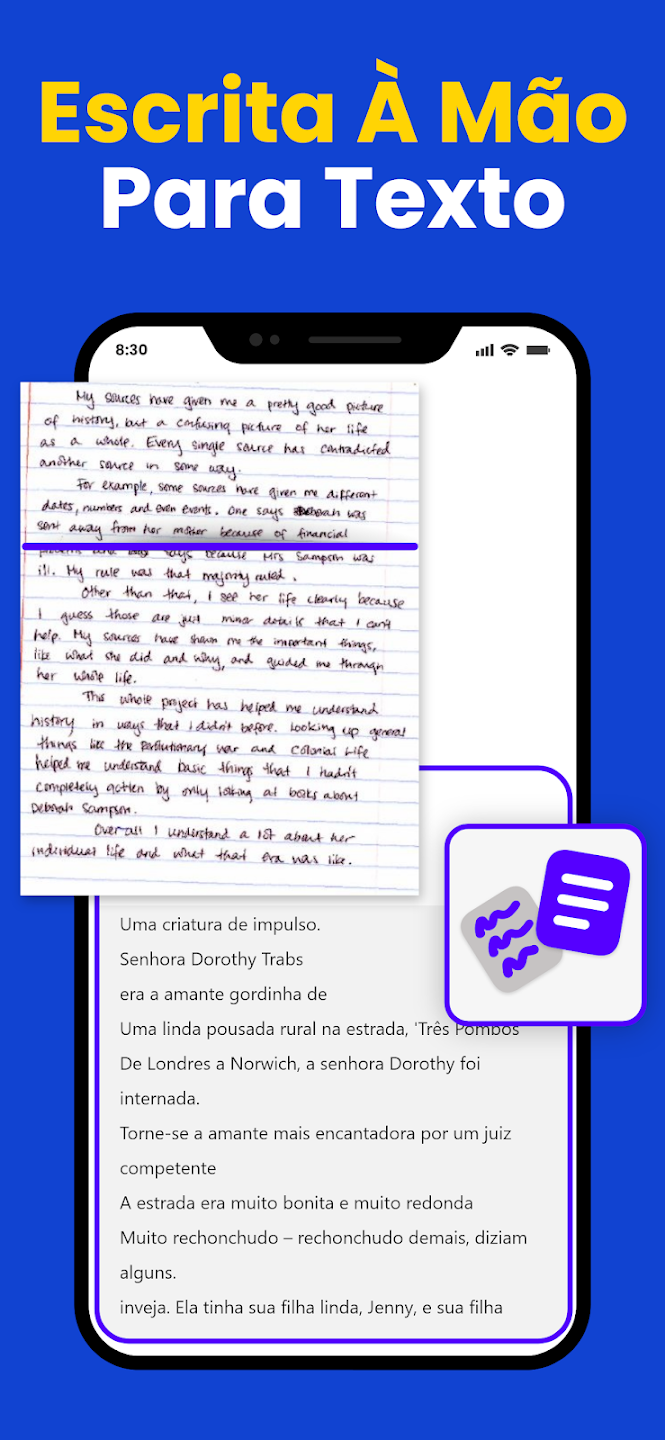 Escrita À Mão
Para Texto
8:30
My sources have given me a pretty good picture
of history, but a confusing picture of her life
as a whole. Every single source has contradicted
another source in some way.
For example, some sources have given me different
dates, numbers and even events. One says Deborah was
sent away from her mother because of financial
says because Mrs Sampson was
ill. My rule was that majority ruled.
Other than that, I see her life clearly because
I guess those are just minor details that I can't
help. My sources have shown me the important things,
like what she did and why, and guided me through
her whole life.
This whole project has helped me understand
history in ways that I didn't before. Looking up general
things like the Revolutionary war and Colonial Life
helped me understand basic things that I hadn't
completely gotten by only looking at books about
Deborah Sampson.
Overall I understand a lot about her
individual life and what that era was like.
Uma criatura de impulso.
Senhora Dorothy Trabs
era a amante gordinha de
Uma linda pousada rural na estrada, 'Três Pombos
De Londres a Norwich, a senhora Dorothy foi
internada.
Torne-se a amante mais encantadora por um juiz
competente
A estrada era muito bonita e muito redonda
Muito rechonchudo – rechonchudo demais, diziam
alguns.
inveja. Ela tinha sua filha linda, Jenny, e sua filha